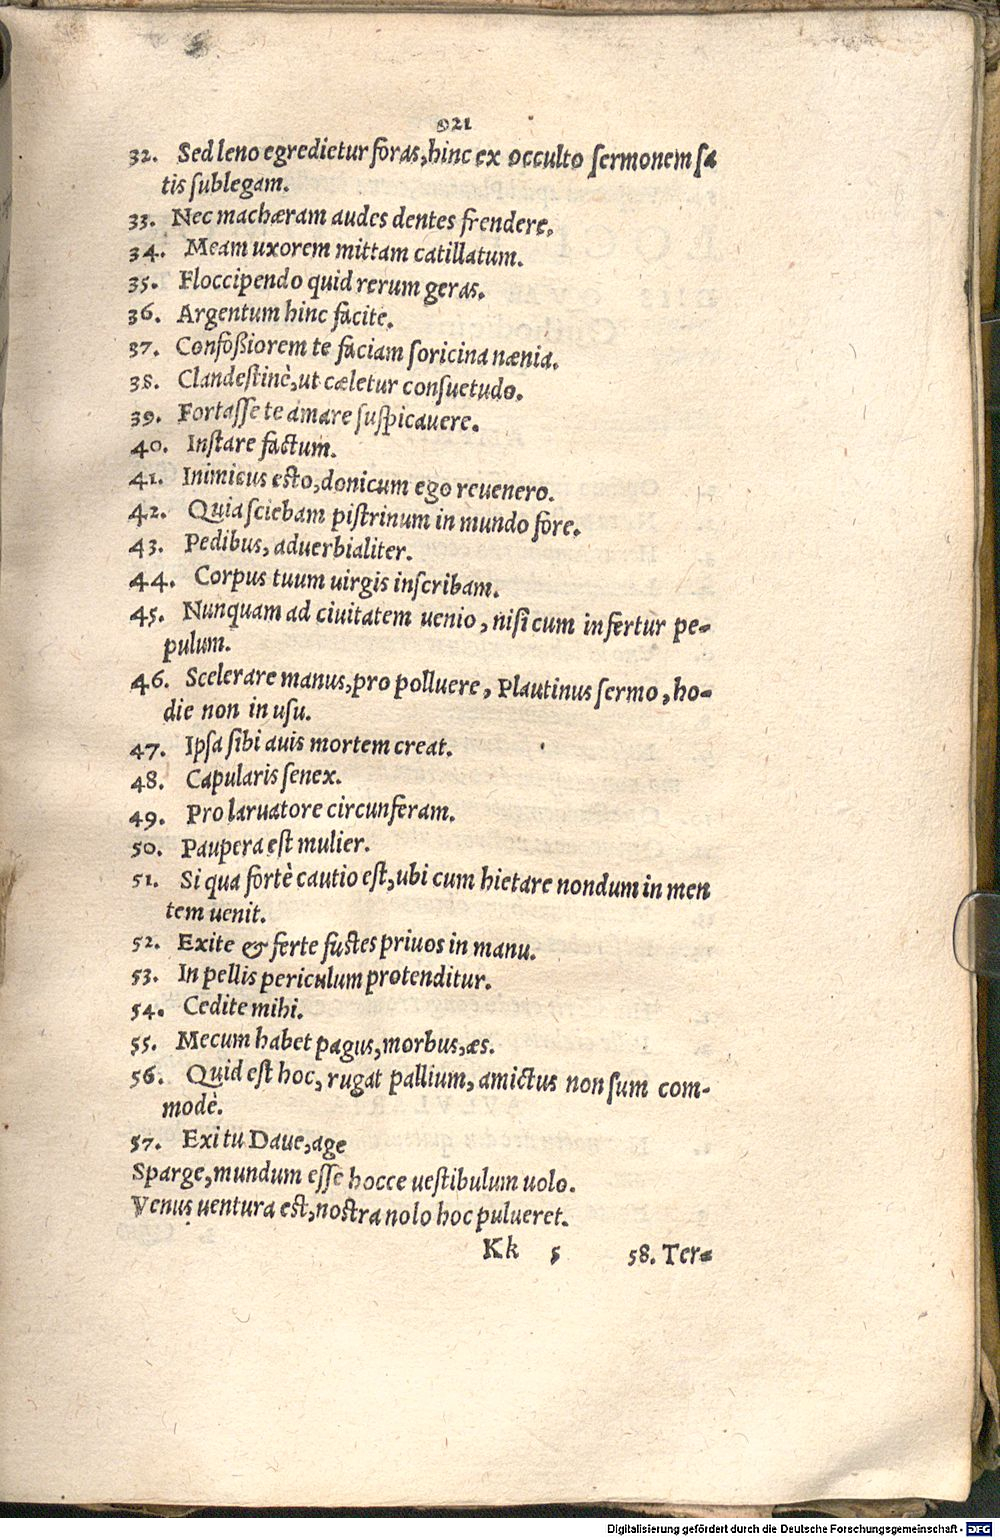 921
32. Sed leno egredietur foras, hinc ex occulto sermonem sa
tis sublegam.
33. Nec machæram audes dentes frendere.
34. Meam uxorem mittam catillatum.
35. Floccipendo quid rerum geras.
36. Argentum hinc facite.
37. Confoßiorem te faciam soricina nænia.
38. Clandestinè, ut cæletur consuetudo.
39. Fortasse te amare suspicauere.
40. Instare factum.
41. Inimicus esto, donicum ego reuenero.
42. Quia sciebam pistrinum in mundo fore.
43. Pedibus, aduerbialiter.
44. Corpus tuum uirgis inscribam.
45. Nunquam ad ciuitatem uenio, nisi cum infertur pe-
pulum.
46. Scelerare manus, pro polluere, Plautinus sermo, ho-
die non in usu.
47. Ipsa sibi auis mortem creat.
48. Capularis senex.
49. Pro laruatore circunferam.
50. Paupera est mulier.
51. Si qua fortè cautio est, ubi cum hietare nondum in men
tem uenit.
52. Exite & ferte fustes priuos in manu.
53. In pellis periculum protenditur.
54. Cedite mihi.
55. Mecum habet pagus, morbus, æs.
56. Quid est hoc, rugat pallium, amictus non sum com-
modè.
57. Exi tu Daue, age
Sparge, mundum esse hocce uestibulum uolo.
Venus uentura est, nostra nolo hoc pulueret.
Kk 5 58. Ter-
Digitalisierung gefördert durch die Deutsche Forschungsgemeinschaft - DFG